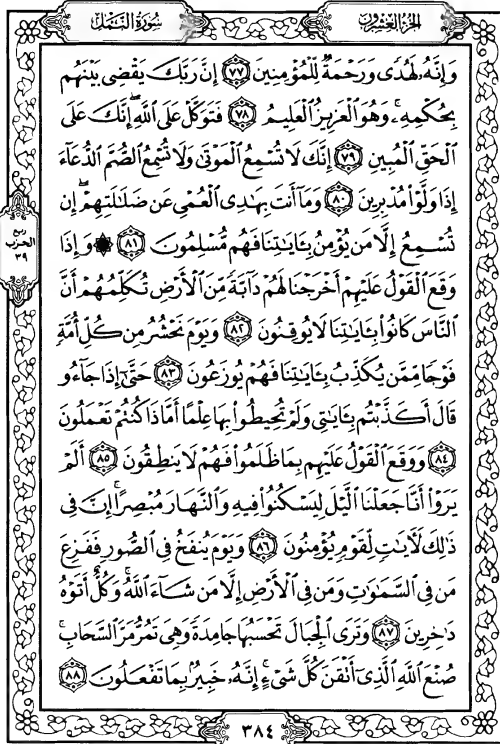 سُورَةُ النَّمْلِ
الجُزْءُ العِشْرُونَ
وَإِنَّهُۥ لَهُدٗى وَرَحۡمَةٞ لِّلۡمُؤۡمِنِينَ ٧٧ إِنَّ رَبَّكَ يَقۡضِي بَيۡنَهُم
بِحُكۡمِهِۦۚ وَهُوَ ٱلۡعَزِيزُ ٱلۡعَلِيمُ ٧٨ فَتَوَكَّلۡ عَلَى ٱللَّهِۖ إِنَّكَ عَلَى
ٱلۡحَقِّ ٱلۡمُبِينِ ٧٩ إِنَّكَ لَا تُسۡمِعُ ٱلۡمَوۡتَىٰ وَلَا تُسۡمِعُ ٱلصُّمَّ ٱلدُّعَآءَ
إِذَا وَلَّوۡاْ مُدۡبِرِينَ ٨٠ وَمَآ أَنتَ بِهَٰدِي ٱلۡعُمۡيِ عَن ضَلَٰلَتِهِمۡۖ إِن
تُسۡمِعُ إِلَّا مَن يُؤۡمِنُ بِـَٔايَٰتِنَا فَهُم مُّسۡلِمُونَ ٨١ ۞ وَإِذَا
وَقَعَ ٱلۡقَوۡلُ عَلَيۡهِمۡ أَخۡرَجۡنَا لَهُمۡ دَآبَّةٗ مِّنَ ٱلۡأَرۡضِ تُكَلِّمُهُمۡ أَنَّ
ٱلنَّاسَ كَانُواْ بِـَٔايَٰتِنَا لَا يُوقِنُونَ ٨٢ وَيَوۡمَ نَحۡشُرُ مِن كُلِّ أُمَّةٖ
فَوۡجٗا مِّمَّن يُكَذِّبُ بِـَٔايَٰتِنَا فَهُمۡ يُوزَعُونَ ٨٣ حَتَّىٰٓ إِذَا جَآءُو
قَالَ أَكَذَّبۡتُم بِـَٔايَٰتِي وَلَمۡ تُحِيطُواْ بِهَا عِلۡمًا أَمَّاذَا كُنتُمۡ تَعۡمَلُونَ
٨٤ وَوَقَعَ ٱلۡقَوۡلُ عَلَيۡهِم بِمَا ظَلَمُواْ فَهُمۡ لَا يَنطِقُونَ ٨٥ أَلَمۡ
يَرَوۡاْ أَنَّا جَعَلۡنَا ٱلَّيۡلَ لِيَسۡكُنُواْ فِيهِ وَٱلنَّهَارَ مُبۡصِرًاۚ إِنَّ فِي
ذَٰلِكَ لَأٓيَٰتٖ لِّقَوۡمٖ يُؤۡمِنُونَ ٨٦ وَيَوۡمَ يُنفَخُ فِي ٱلصُّورِ فَفَزِعَ
مَن فِي ٱلسَّمَٰوَٰتِ وَمَن فِي ٱلۡأَرۡضِ إِلَّا مَن شَآءَ ٱللَّهُۚ وَكُلٌّ أَتَوۡهُ
دَٰخِرِينَ ٨٧ وَتَرَى ٱلۡجِبَالَ تَحۡسَبُهَا جَامِدَةٗ وَهِيَ تَمُرُّ مَرَّ ٱلسَّحَابِۚ
صُنۡعَ ٱللَّهِ ٱلَّذِيٓ أَتۡقَنَ كُلَّ شَيۡءٍۚ إِنَّهُۥ خَبِيرُۢ بِمَا تَفۡعَلُونَ ٨٨
ربع
الحزب
٣٩
٣٨٤